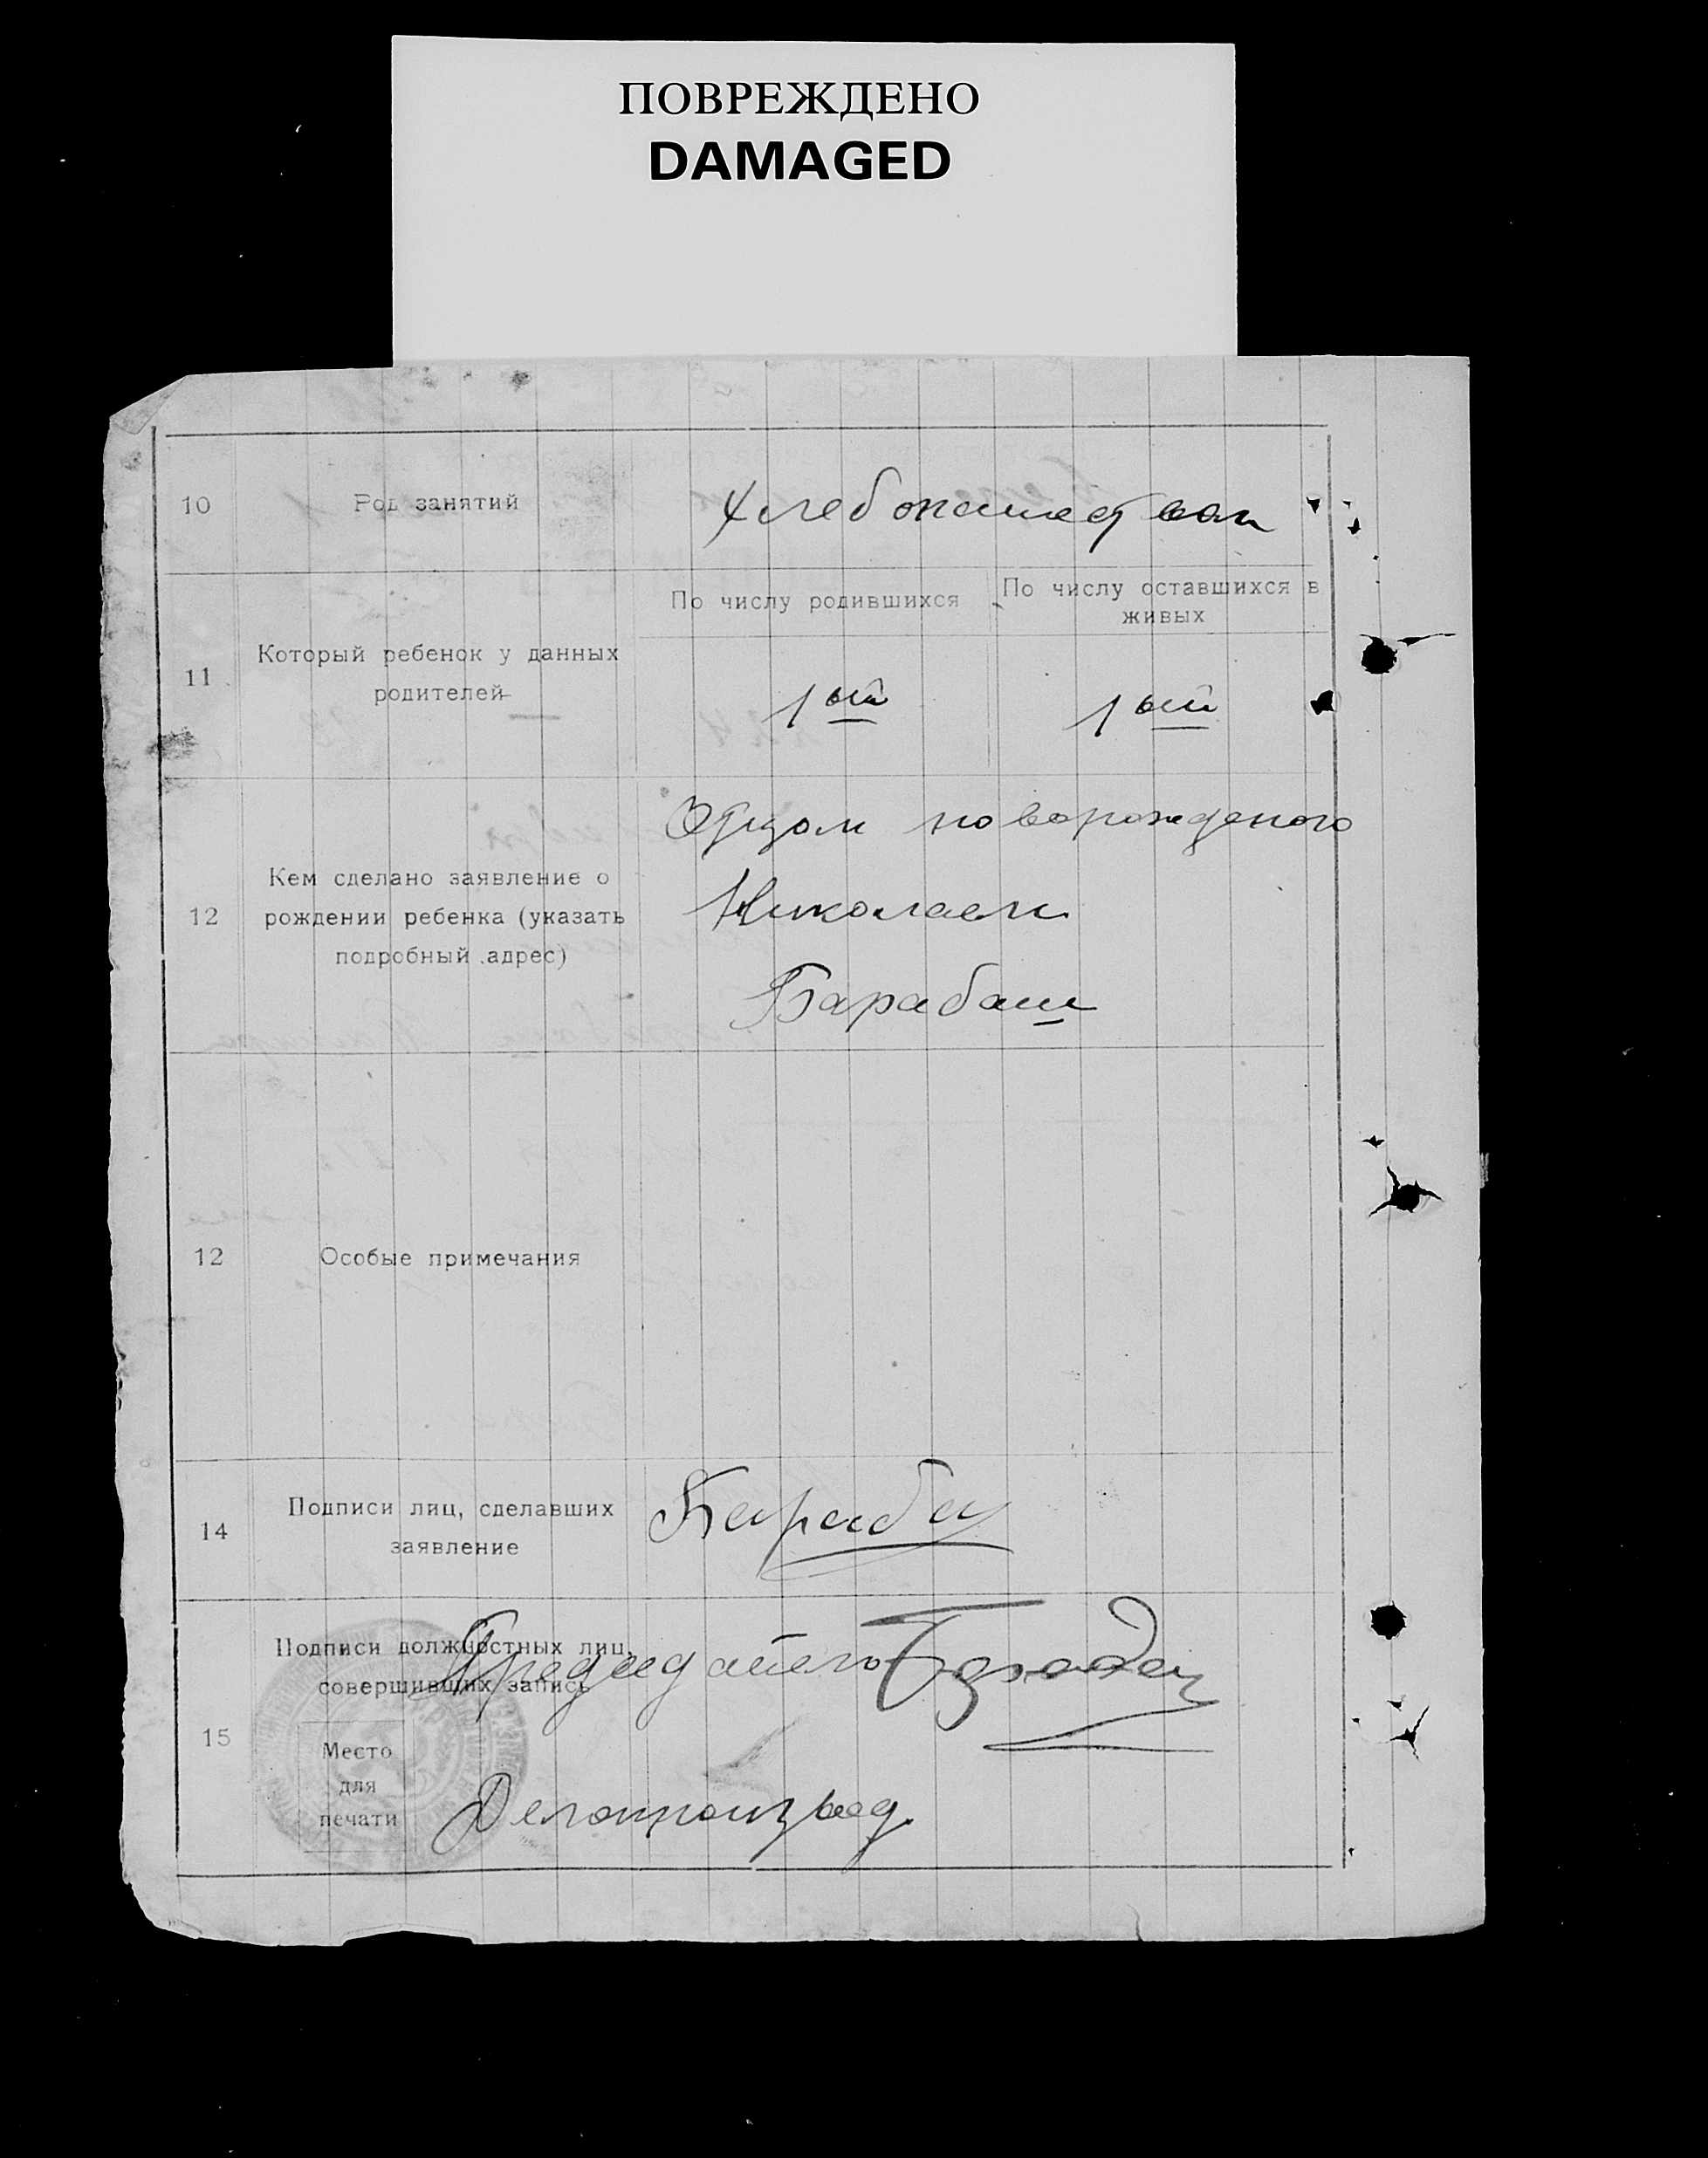 ПОВРЕЖДЕНО
DAMAGED
10
Род занятий
Хлебопашество
По числу родившихся
По числу оставшихся в живых
11
Который ребенок у данных
родителей
1ый
1ый
12
Кем сделано заявление о
рождении ребенка (указать
подробный адрес)
Отцом новорожденого
Николаем
Барабаш
12
Особые примечания
14
Подписи лиц, сделавших
заявление
Бараба
15
Подписи должностных лиц,
совершивших запись
Место
для
печати
Делопроизвод.